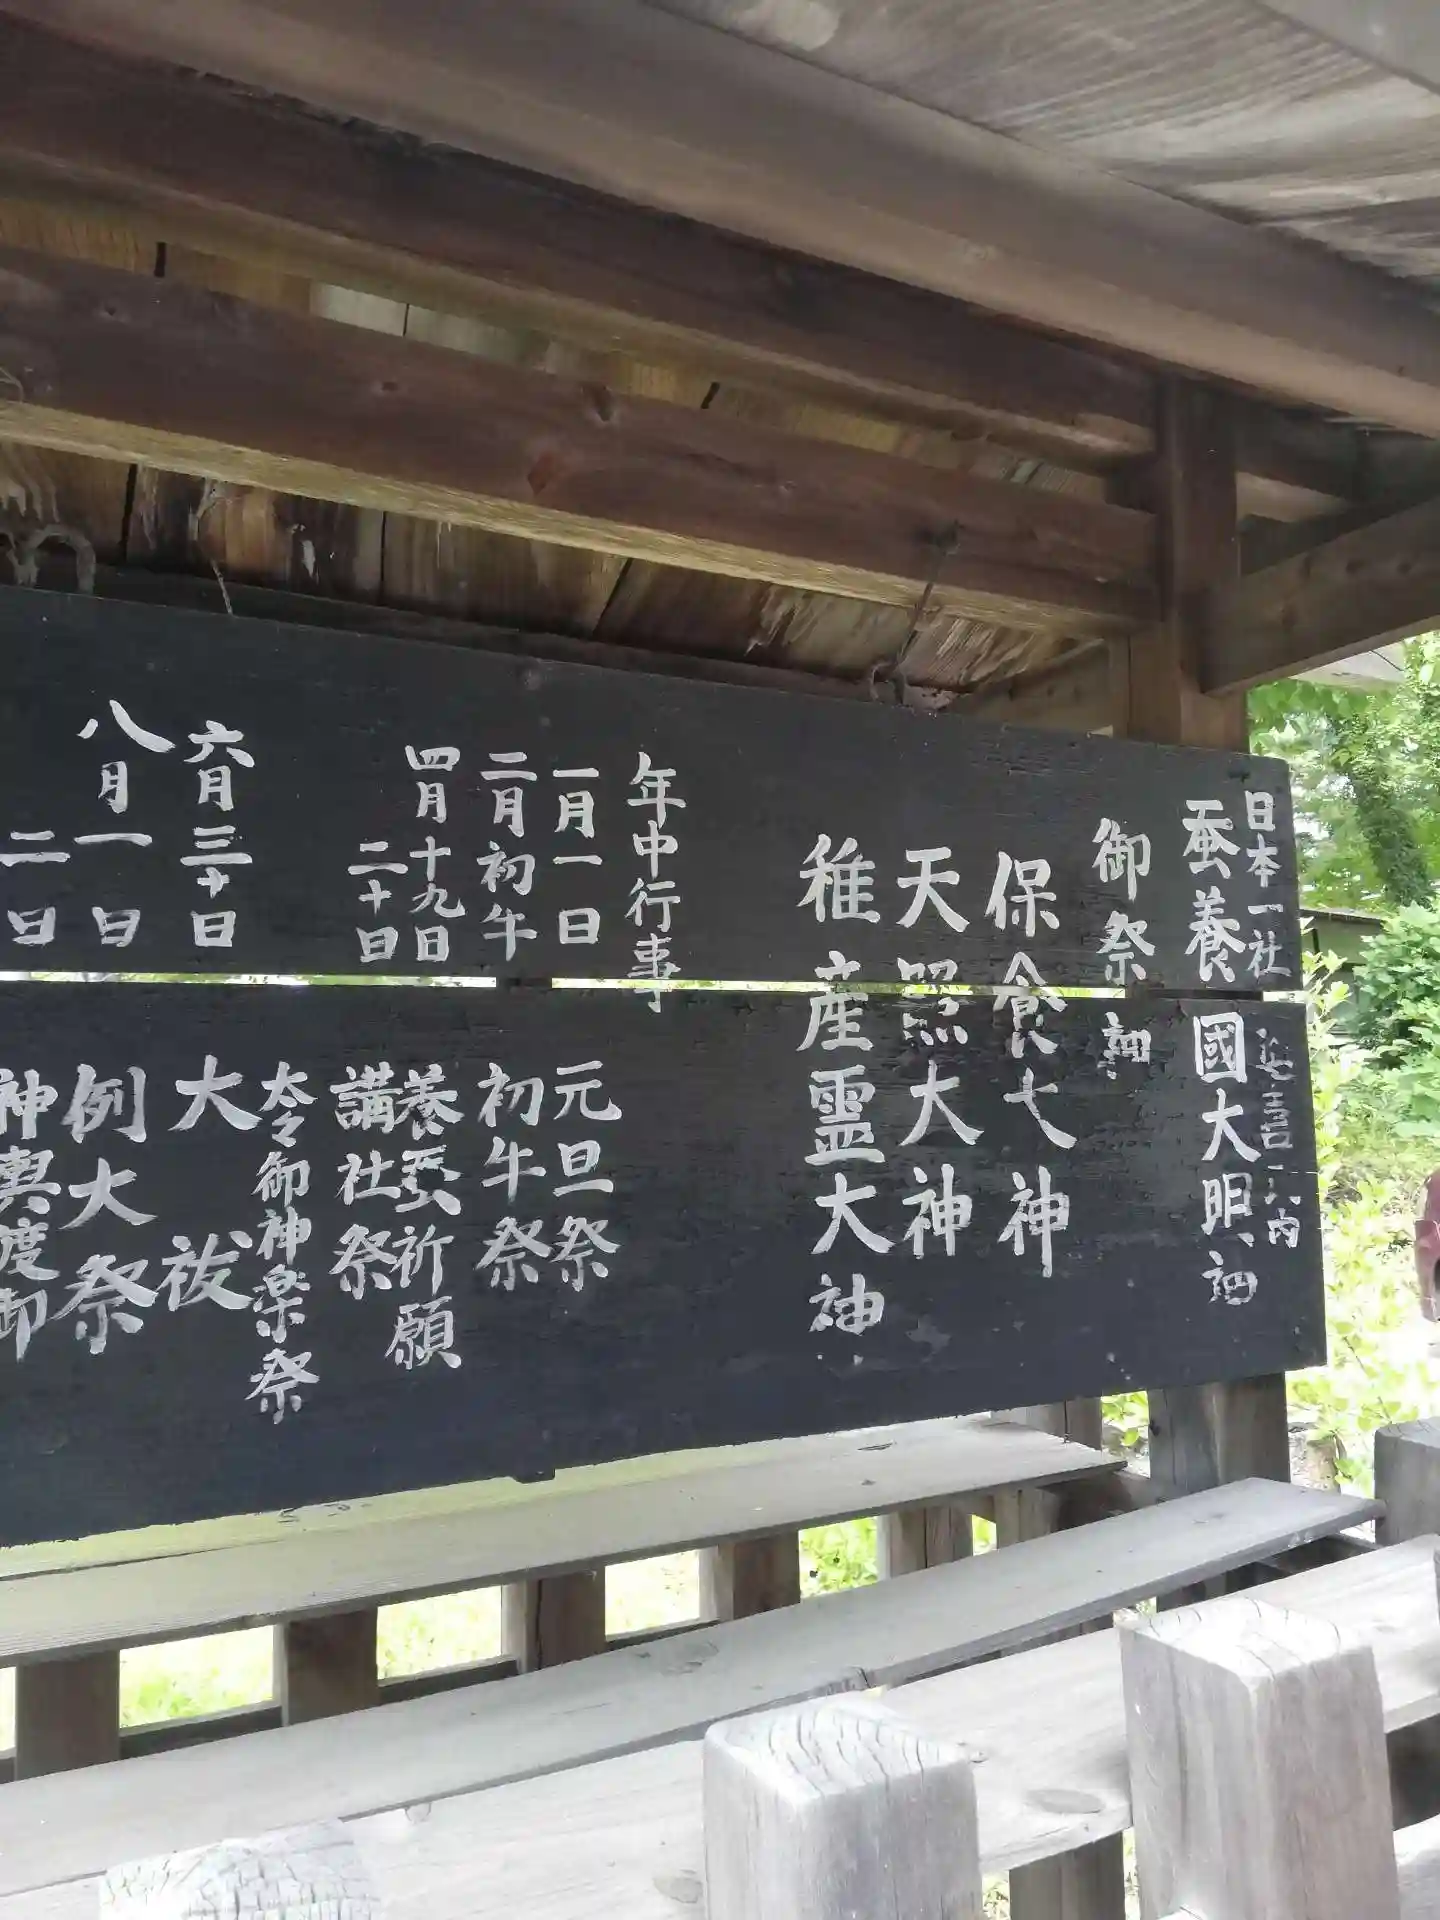 日本一社
蚕養國大明神
御祭神
保食大神
天照大神
稚産霊大神
年中行事
一月一日 元旦祭
二月初午 初午祭
四月十九日 養蚕祈願
二十日 講社祭
太々御神楽祭
六月三十日 大祓
八月一日 例大祭
二日 神輿渡御